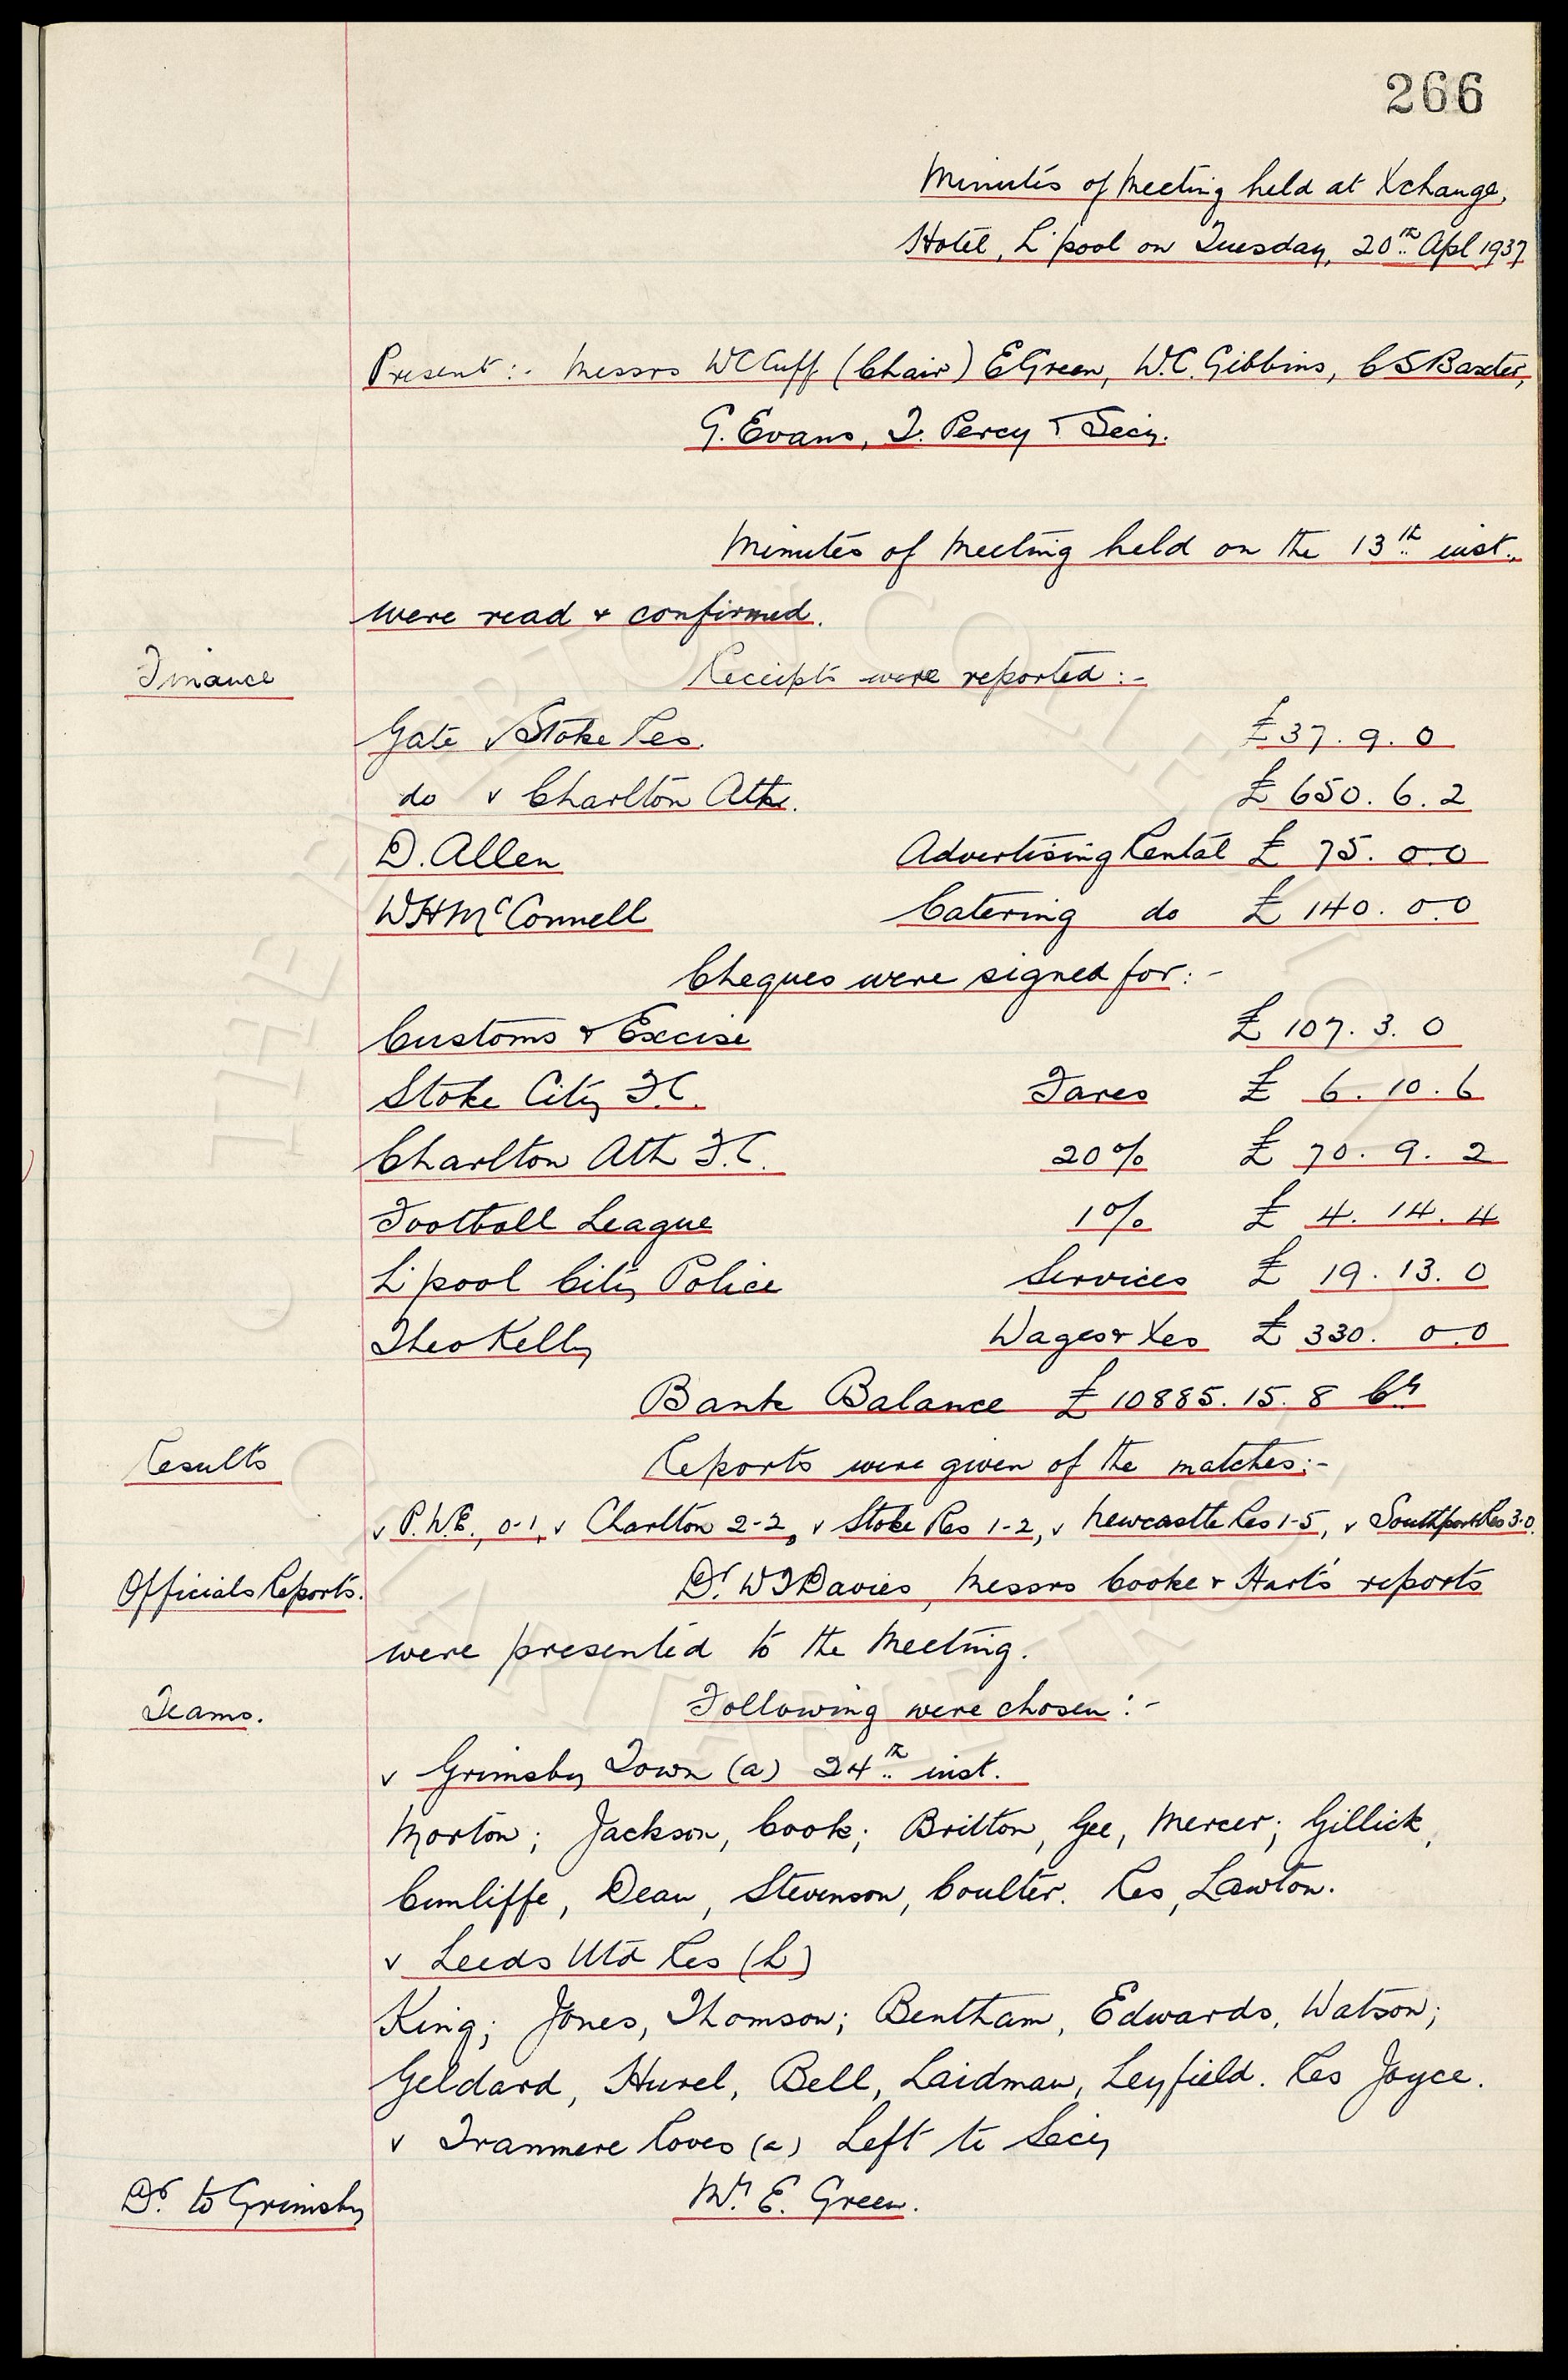 266
Minutes of Meeting held at Xchange,
Hotel, L'pool on Tuesday, 20th Apl 1937
Present:- Messrs WCCuff (Chair) EGreen, W.C. Gibbins, CSBaxter,
G. Evans, T. Percy & Secy.
Minutes of Meeting held on the 13th inst.
were read & confirmed.
Finance Receipts were reported:-
Gate v Stoke Res. £37.9.0
do v Charlton Athc. £650.6.2
D. Allen Advertising Rental £ 75.0.0
WHMcConnell Catering do £ 140.0.0
Cheques were signed for:-
Customs & Excise £ 107.3.0
Stoke City F.C. Fares £ 6.10.6
Charlton Ath F.C. 20% £ 70.9.2
Football League 1% £ 4.14.4
L'pool City Police Services £ 19.13.0
Theo Kelly Wages & Xes £ 330.0.0
Bank Balance £10885.15.8 Cr
Results Reports were given of the matches:-
v P.N.E. 0-1, v Charlton 2-2, v Stoke Res 1-2, v Newcastle Res 1-5, v Southport Res 3-0.
Officials Reports. Dr WJDavies, Messrs Cooke & Hart's reports
were presented to the Meeting.
Teams. Following were chosen:-
v Grimsby Town (a) 24th inst.
Morton; Jackson, Cook; Britton, Gee, Mercer; Gillick,
Cunliffe, Dean, Stevenson, Coulter. Res, Lawton.
v Leeds Utd Res (h)
King; Jones, Thomson; Bentham, Edwards, Watson;
Geldard, Hurel, Bell, Laidman, Leyfield. Res Joyce.
v Tranmere Roves (a) Left to Secy
Dr. to Grimsby Mr. E. Green.
© THE EVERTON COLLECTION